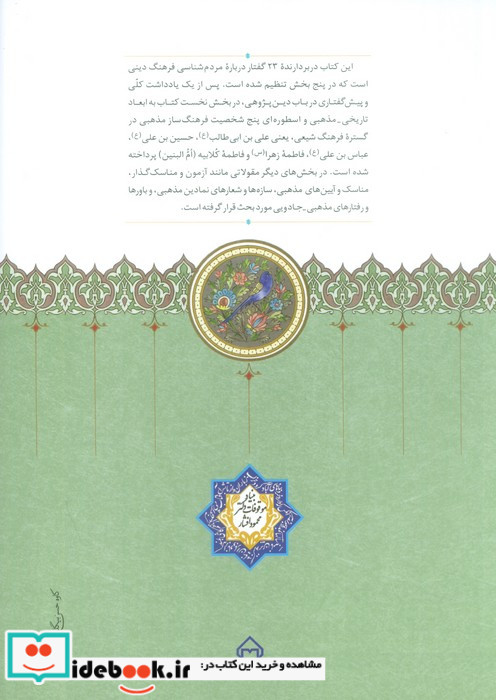 این کتاب دربردارندهٔ ۲۳ گفتار دربارهٔ مردم‌شناسی فرهنگ دینی
است که در پنج بخش تنظیم شده است. پس از یک یادداشت کلّی
و پیش‌گفتاری در باب دین‌پژوهی، در بخش نخست کتاب به ابعاد
تاریخی ـ مذهبی و اسطوره‌ای پنج شخصیت فرهنگ‌ساز مذهبی در
گسترهٔ فرهنگ شیعی، یعنی علی بن ابی‌طالب(ع)، حسین بن علی(ع)،
عباس بن علی(ع)، فاطمهٔ زهرا(س) و فاطمهٔ کلابیه (اُمُّ البنین) پرداخته
شده است. در بخش‌های دیگر مقولاتی مانند آزمون و مناسک گذار،
مناسک و آیین‌های مذهبی، سازه‌ها و شعارهای نمادین مذهبی، و باورها
و رفتارهای مذهبی ـ جادویی مورد بحث قرار گرفته است.
بنیاد
موقوفات دکتر
محمود افشار
مشاهده و خرید این کتاب در:
idebook.ir